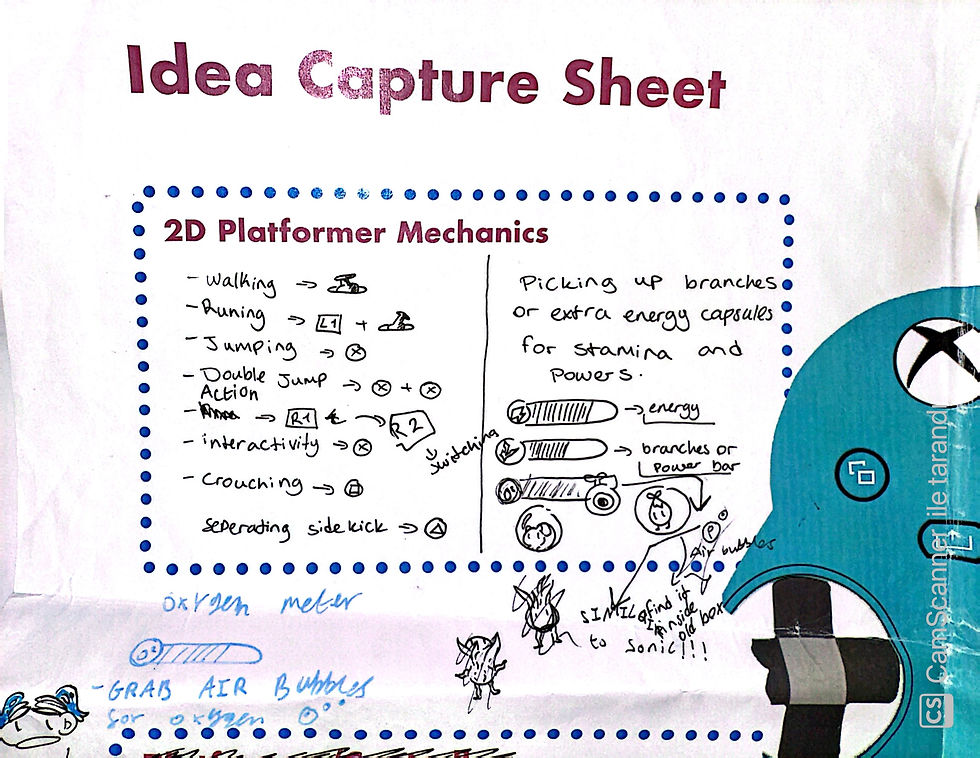 Idea Capture Sheet
2D Platformer Mechanics
- walking →
- Runing → L1 +
- Jumping → X
- Double Jump → X + X
Action
- → R1 → R2
↓ switching
- interactivity → X
- crouching → □
seperating sidekick → △
Picking up branches
or extra energy capsules
for stamina and
powers.
→ energy
→ branches or
power bar
Air bubbles
find it
inside
old box
SIMILA
to Sonic!!!
oxygen meter
O²
- GRAB AIR Bubbles
for oxygen
CS CamScanner ile tarandı